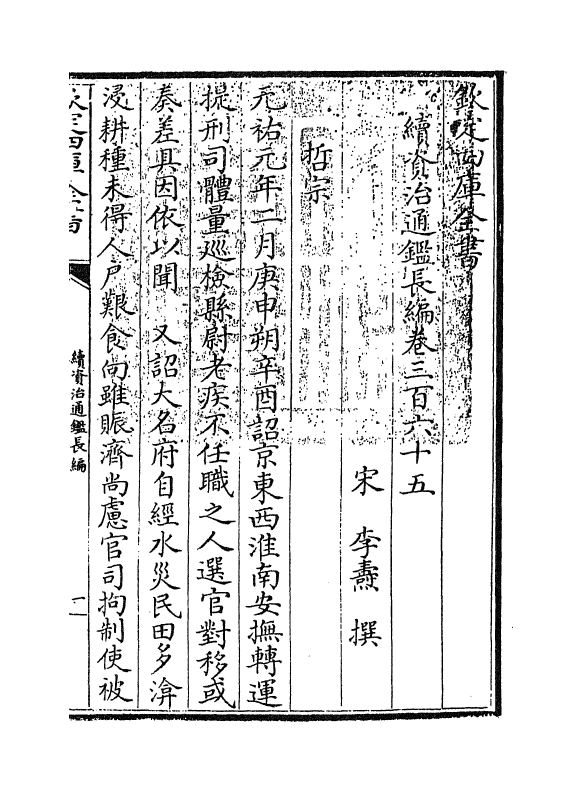 欽定四庫全書
續資治通鑑長編卷三百六十五
宋 李燾 撰
哲宗
元祐元年二月庚申朔辛酉詔京東西淮南安撫轉運
提刑司體量廵檢縣尉老疾不任職之人選官對移或
奏差具因依以聞 又詔大名府自經水災民田多渰
浸耕種未得人戸艱食向雖賑濟尚慮官司拘制使被
欽定四庫全書
續資治通鑑長編
一